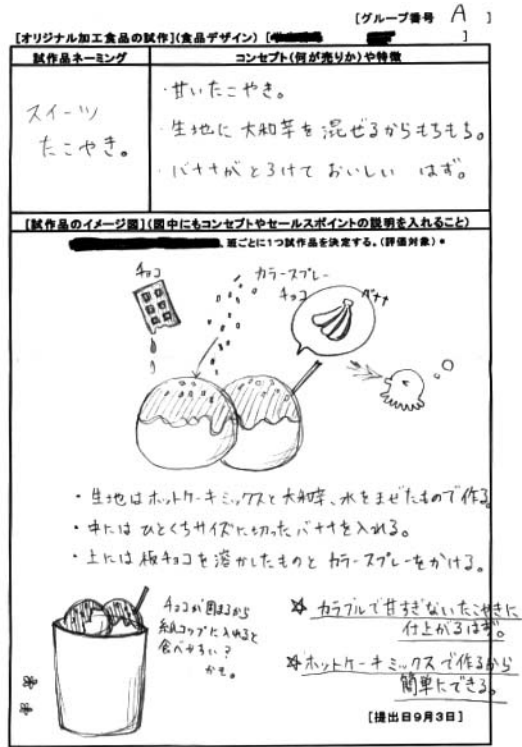 [グループ番号 A ]
[オリジナル加工食品の試作](食品デザイン) [ ]
試作品ネーミング
コンセプト(何が売りか)や特徴
スイーツ
たこやき。
・甘いたこやき。
・生地に大和芋を混ぜるからもちもち。
・バナナがとろけておいしい はず。
[試作品のイメージ図](図中にもコンセプトやセールスポイントの説明を入れること)
班ごとに1つ試作品を決定する。(評価対象)*
チョコ
カラースプレー
チョコ
バナナ
・生地はホットケーキミックスと大和芋、水をまぜたもので作る。
・中にはひとくちサイズに切ったバナナを入れる。
・上には板チョコを溶かしたものとカラースプレーをかける。
チョコが固まるから
紙コップに入れると
食べやすい?
かも。
☆ カラフルで甘すぎないたこやきに
仕上がるはず。
☆ ホットケーキミックスで作るから
簡単にできる。
[提出日9月3日]